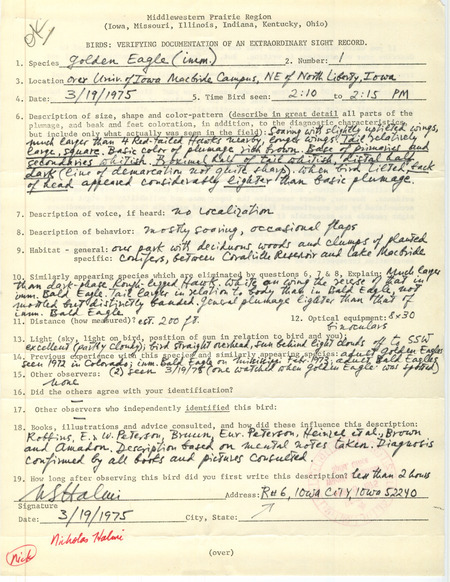 OK
Middlewestern Prairie Region
(Iowa, Missouri, Illinois, Indiana, Kentucky, Ohio)
BIRDS: VERIFYING DOCUMENTATION OF AN EXTRAORDINARY SIGHT RECORD.
1. Species Golden Eagle (imm.) 2. Number: 1
3. Location over Univ. of Iowa Macbride Campus, NE of North Liberty, Iowa
4. Date: 3/19/1975 5. Time Bird seen: 2:10 to 2:15 PM
6. Description of size, shape and color-pattern (describe in great detail all parts of the
plumage, and beak and feet coloration, in addition, to the diagnostic characteristics,
but include only what actually was seen in the field): Soaring with slightly uplifted wings,
much larger than 4 Red-tailed Hawks nearby, longer wings. Tail relatively
large, square. Basic color of plumage rich brown. Base of primaries and
secondaries whitish. Proximal half of tail whitish, distal half
dark (line of demarcation not quite sharp). When bird tilted, back
of head appeared considerably lighter than basic plumage.
7. Description of voice, if heard: no localization
8. Description of behavior: mostly soaring, occasional flaps
9. Habitat - general: over park with deciduous woods and clumps of planted
specific: conifers, between Coralville Reservoir and Lake Macbride
10. Similarly appearing species which are eliminated by questions 6, 7 & 8, Explain: Much larger
than dark-phase Rough-legged Hawk. White on wing the reverse of that in
imm. Bald Eagle. Tail larger in relation to body than in Bald Eagle, not
mottled but distinctly banded. General plumage lighter than that of
imm. Bald Eagle.
11. Distance (how measured)? est. 200 ft. 12. Optical equipment: 8x30
binoculars
13. Light (sky, light on bird, position of sun in relation to bird and you):
excellent (partly cloudy); bird straight overhead, sun behind light clouds of SSW
14. Previous experience with this species and similarly appearing species: adult Golden Eagles
seen 1972 in Colorado; imm. Bald Eagle on Mississippi, Feb. 1973; adult Bald Eagles
15. Other observers: (2) seen 3/19/75 (one watched when Golden Eagle was spotted)
none
16. Did the others agree with your identification?
17. Other observers who independently identified this bird:
18. Books, illustrations and advice consulted, and how did these influence this description:
Robbins, E. & W. Peterson, Bruun, Eur. Peterson, Heinzel et al., Brown
and Amadon. Description based on mental notes taken. Diagnosis
confirmed by all books and pictures consulted.
19. How long after observing this bird did you first write this description? less than 2 hours
NSHalmi Address: RR 6, Iowa City, Iowa 52240
Signature
Date: 3/19/1975 City, State:
Nicholas Halmi
Nick
(over)